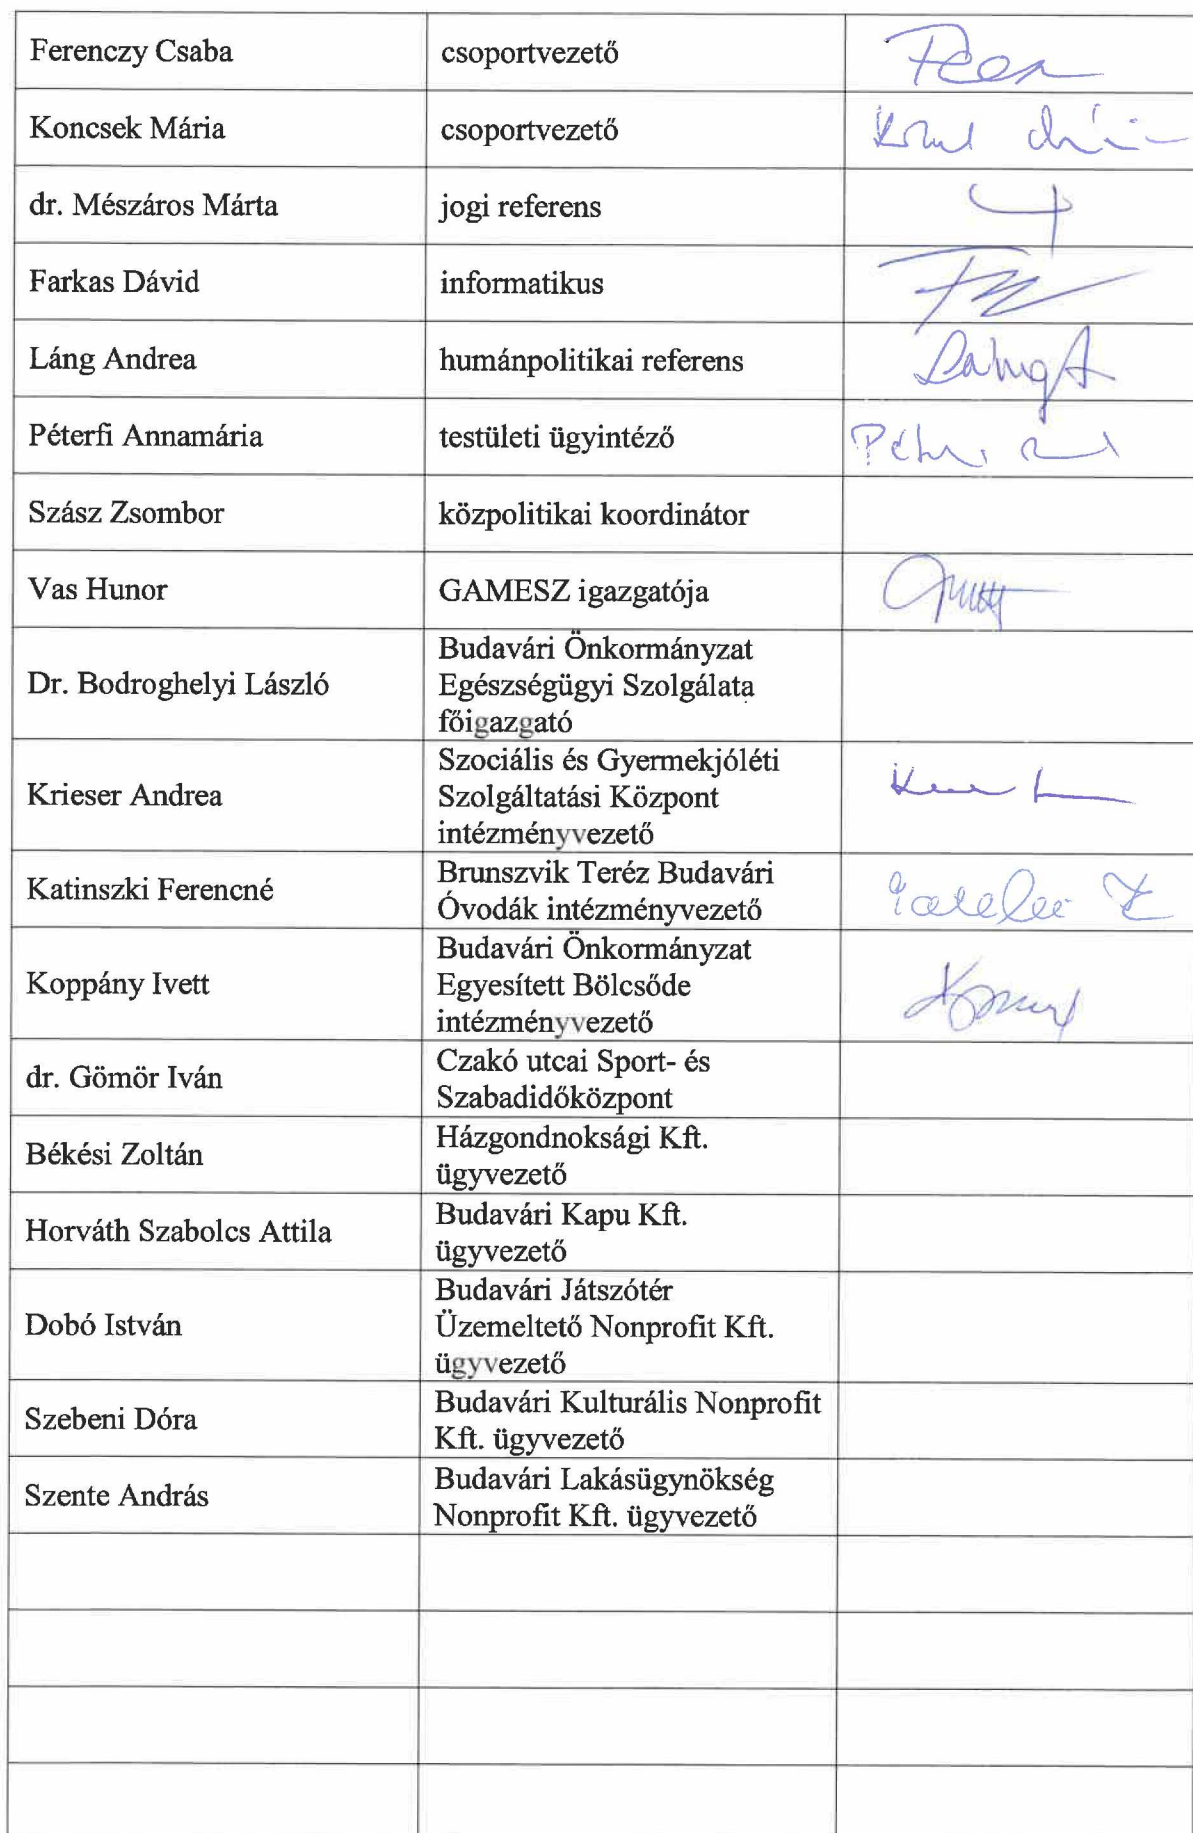 Ferenczy Csaba csoportvezető
Koncsek Mária csoportvezető
dr. Mészáros Márta jogi referens
Farkas Dávid informatikus
Láng Andrea humánpolitikai referens
Péterfi Annamária testületi ügyintéző
Szász Zsombor közpolitikai koordinátor
Vas Hunor GAMESZ igazgatója
Dr. Bodroghelyi László
Budavári Önkormányzat
Egészségügyi Szolgálata
főigazgató
Krieser Andrea
Szociális és Gyermekjóléti
Szolgáltatási Központ
intézményvezető
Katinszki Ferencné
Brunszvik Teréz Budavári
Óvodák intézményvezető
Koppány Ivett
Budavári Önkormányzat
Egyesített Bölcsőde
intézményvezető
dr. Gömör Iván
Czakó utcai Sport- és
Szabadidőközpont
Békési Zoltán
Házgondnoksági Kft.
ügyvezető
Horváth Szabolcs Attila
Budavári Kapu Kft.
ügyvezető
Dobó István
Budavári Játszótér
Üzemeltető Nonprofit Kft.
ügyvezető
Szebeni Dóra
Budavári Kulturális Nonprofit
Kft. ügyvezető
Szente András
Budavári Lakásügynökség
Nonprofit Kft. ügyvezető